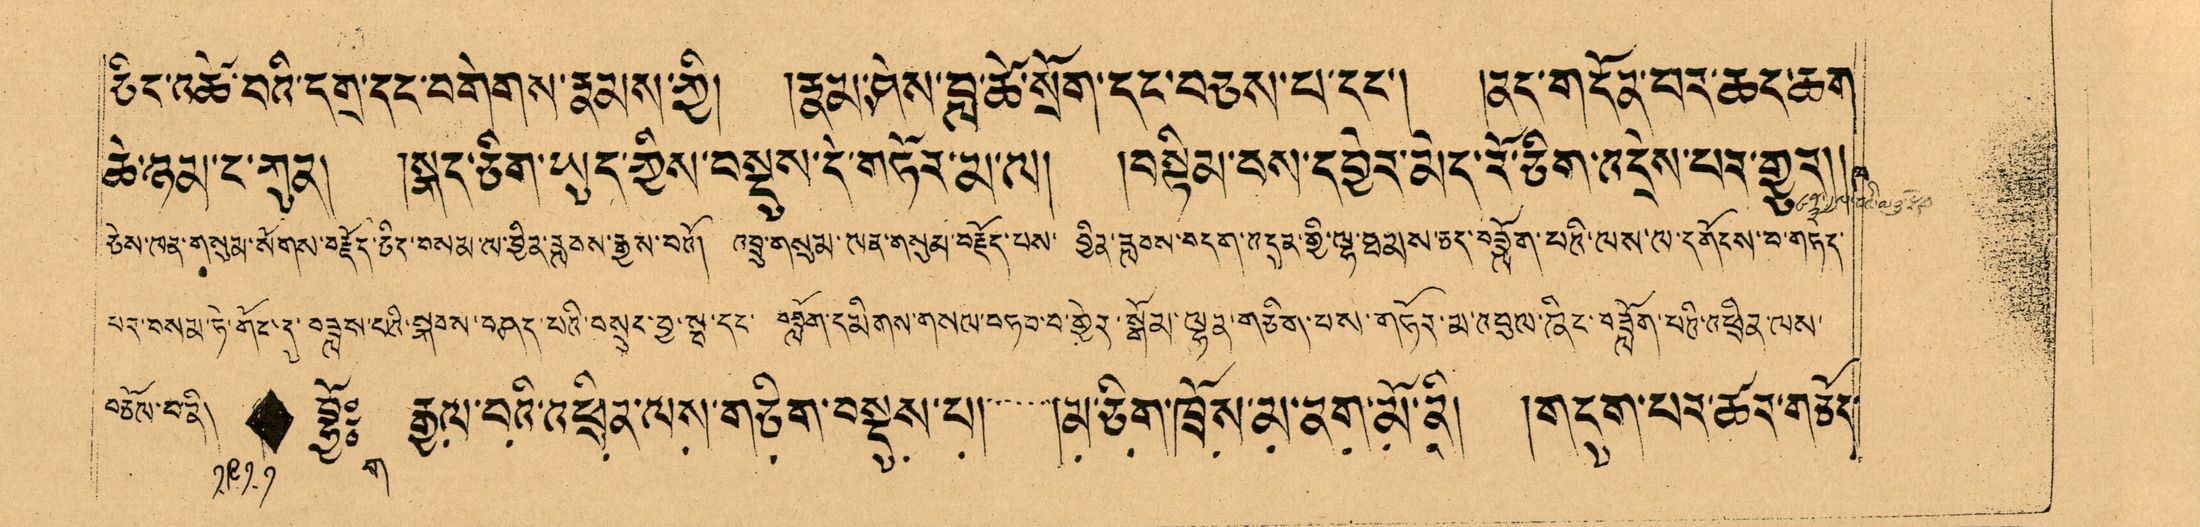 ཅིང་འཚེ་བའི་དགྲ་དང་བགེགས་རྣམས་ཀྱི། །རྣམ་ཤེས་བླ་ཚེ་སྲོག་དང་བཅས་པ་དང་། །ནད་གདོན་བར་ཆད་ཆག
ཆེ་ཉམ་ང་ཀུན། །སྐད་ཅིག་ཡུད་ཀྱིས་བསྡུས་དེ་གཏོར་མ་ལ། །བསྟིམ་བས་དབྱེར་མེད་རོ་ཅིག་འདྲེས་པར་གྱུར།།
ཅེས་ལན་གསུམ་སོགས་བརྗོད་ཅིང་བསམ་ལ་བྱིན་རླབས་རྒྱས་བཏོ། འབྲུ་གསུམ་ལན་གསུམ་བརྗོད་པས་ བྱིན་རླབས་བདག་འདུན་གྱི་ལྷ་ཐམས་ཅད་བཟློག་པའི་ལས་ལ་དགོངས་བ་གཏད་
པར་བསམ་ཏེ་གོང་དུ་བཟླས་པའི་སྐབས་བཤད་པའི་བསྲུང་བྱ་སྤྲ་དང་ བཟློག་དམིགས་གསལ་བཏབ་བ་གྱེར་སྒོམ་ལྡན་གཅིག་པས་ གཏོར་མ་འབུལ་ཞིང་བཟློག་པའི་འཕྲིན་ལས་
བཅོལ་བ་ནི། ཧཱུྃ༔ རྒྱལ་བའི་འཕྲིན་ལས་གཅིག་བསྡུས་པ། །མ་ཅིག་ཁྲོས་མ་ནག་མོ་ནི། །གདུག་པར་ཚར་གཅོད་